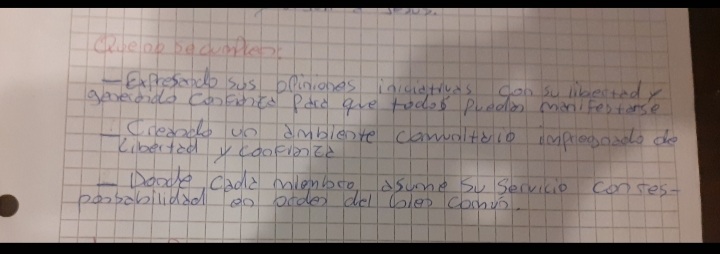 Jesus.
Que no se cumplen:
— Expresando sus opiniones iniciativas con su libertad y
generando confianza para que todos puedan manifestarse
— Creando un ambiente comunitario impregnado de
libertad y confianza
— Donde cada miembro asume su servicio con res-
ponsabilidad en orden del bien común.